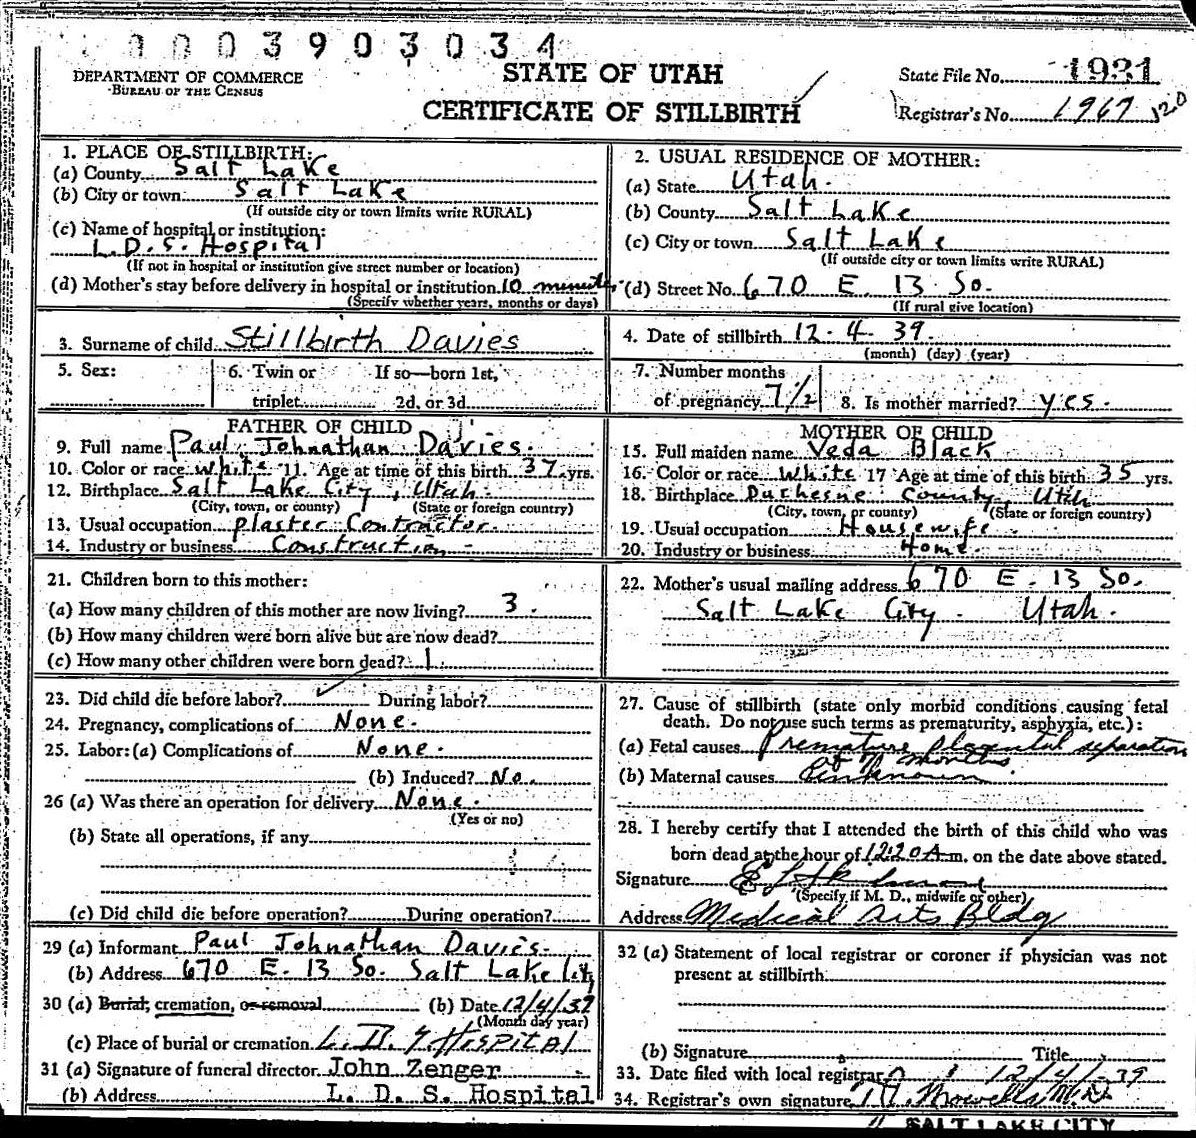 0003903034
DEPARTMENT OF COMMERCE
BUREAU OF THE CENSUS
STATE OF UTAH
CERTIFICATE OF STILLBIRTH
State File No. 1931
Registrar's No. 1967 120
1. PLACE OF STILLBIRTH:
(a) County Salt Lake
(b) City or town Salt Lake
(If outside city or town limits write RURAL)
(c) Name of hospital or institution:
L.D.S. Hospital
(If not in hospital or institution give street number or location)
(d) Mother's stay before delivery in hospital or institution 10 minutes
(Specify whether years, months or days)
2. USUAL RESIDENCE OF MOTHER:
(a) State Utah.
(b) County Salt Lake
(c) City or town Salt Lake
(If outside city or town limits write RURAL)
(d) Street No. 670 E. 13 So.
(If rural give location)
3. Surname of child Stillbirth Davies
4. Date of stillbirth 12-4-39.
(month) (day) (year)
5. Sex:
6. Twin or If so—born 1st,
triplet 2d, or 3d
7. Number months
of pregnancy 7 1/2
8. Is mother married? yes.
FATHER OF CHILD
9. Full name Paul Johnathan Davies.
10. Color or race White 11. Age at time of this birth 37 yrs.
12. Birthplace Salt Lake City, Utah.
(City, town, or county) (State or foreign country)
13. Usual occupation plaster Contractor.
14. Industry or business Construction
MOTHER OF CHILD
15. Full maiden name Veda Black
16. Color or race White 17 Age at time of this birth 35 yrs.
18. Birthplace Duchesne County, Utah
(City, town, or county) (State or foreign country)
19. Usual occupation Housewife
20. Industry or business Home.
21. Children born to this mother:
(a) How many children of this mother are now living? 3.
(b) How many children were born alive but are now dead?
(c) How many other children were born dead? 1.
22. Mother's usual mailing address 670 E. 13 So.
Salt Lake City. Utah.
23. Did child die before labor? ✓ During labor?
24. Pregnancy, complications of None.
25. Labor: (a) Complications of None.
(b) Induced? No.
26 (a) Was there an operation for delivery None.
(Yes or no)
(b) State all operations, if any
(c) Did child die before operation? During operation?
27. Cause of stillbirth (state only morbid conditions causing fetal
death. Do not use such terms as prematurity, asphyxia, etc.):
(a) Fetal causes Premature placental separation
at 7 1/2 months
(b) Maternal causes Unknown.
28. I hereby certify that I attended the birth of this child who was
born dead at the hour of 12:20 A m. on the date above stated.
Signature
(Specify if M. D., midwife or other)
Address Medical Arts Bldg
29 (a) Informant Paul Johnathan Davies.
(b) Address 670 E. 13 So. Salt Lake City
30 (a) Burial, cremation, or removal (b) Date 12/4/39
(Month day year)
(c) Place of burial or cremation L.D.S Hospital
31 (a) Signature of funeral director John Zenger
(b) Address L. D. S. Hospital
32 (a) Statement of local registrar or coroner if physician was not
present at stillbirth
(b) Signature Title
33. Date filed with local registrar 12/4/39
34. Registrar's own signature
SALT LAKE CITY